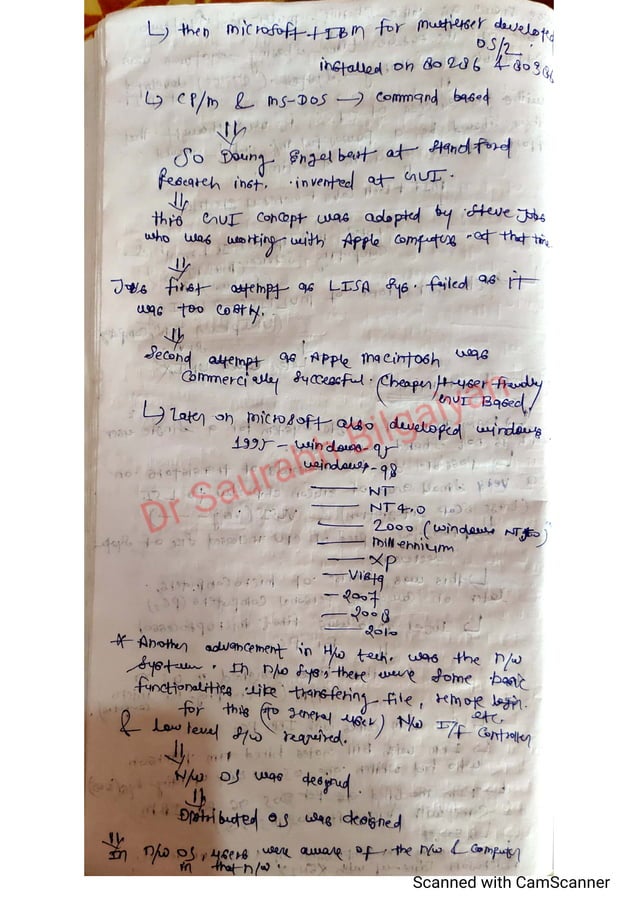 ↳ then microsoft + IBM for multiuser developed
OS/2
installed on 80286 & 80386
↳ CP/M & MS-DOS → command based
⇓
So Doung Engelbart at Standford
Research inst. invented at GUI.
⇓
this GUI concept was adopted by Steve Jobs
who was working with Apple computers at that time
⇓
Jobs first attempt as LISA sys. failed as it
was too costly.
⇓
Second attempt as Apple macintosh was
commercially successful. (Cheaper/+user friendly/
GUI Based)
↳ Later on microsoft also developed windows
1995 - windows-95
windows-98
— NT
— NT 4.0
— 2000 (windows NT 5.0)
— millennium
— XP
— Vista
— 2007
— 2008
— 2010
* Another advancement in H/w tech. was the n/w
system. In n/w sys, there were some basic
functionalities like transfering file, remote login.
etc.
for this (to general user) N/w I/f controller
& low level s/w required.
⇓
N/w OS was desgned.
⇓
Distributed OS was designed
⇓
In n/w OS, users were aware of the n/w & computer
in that n/w.
Dr Saurabh Bilgaiyan
Scanned with CamScanner